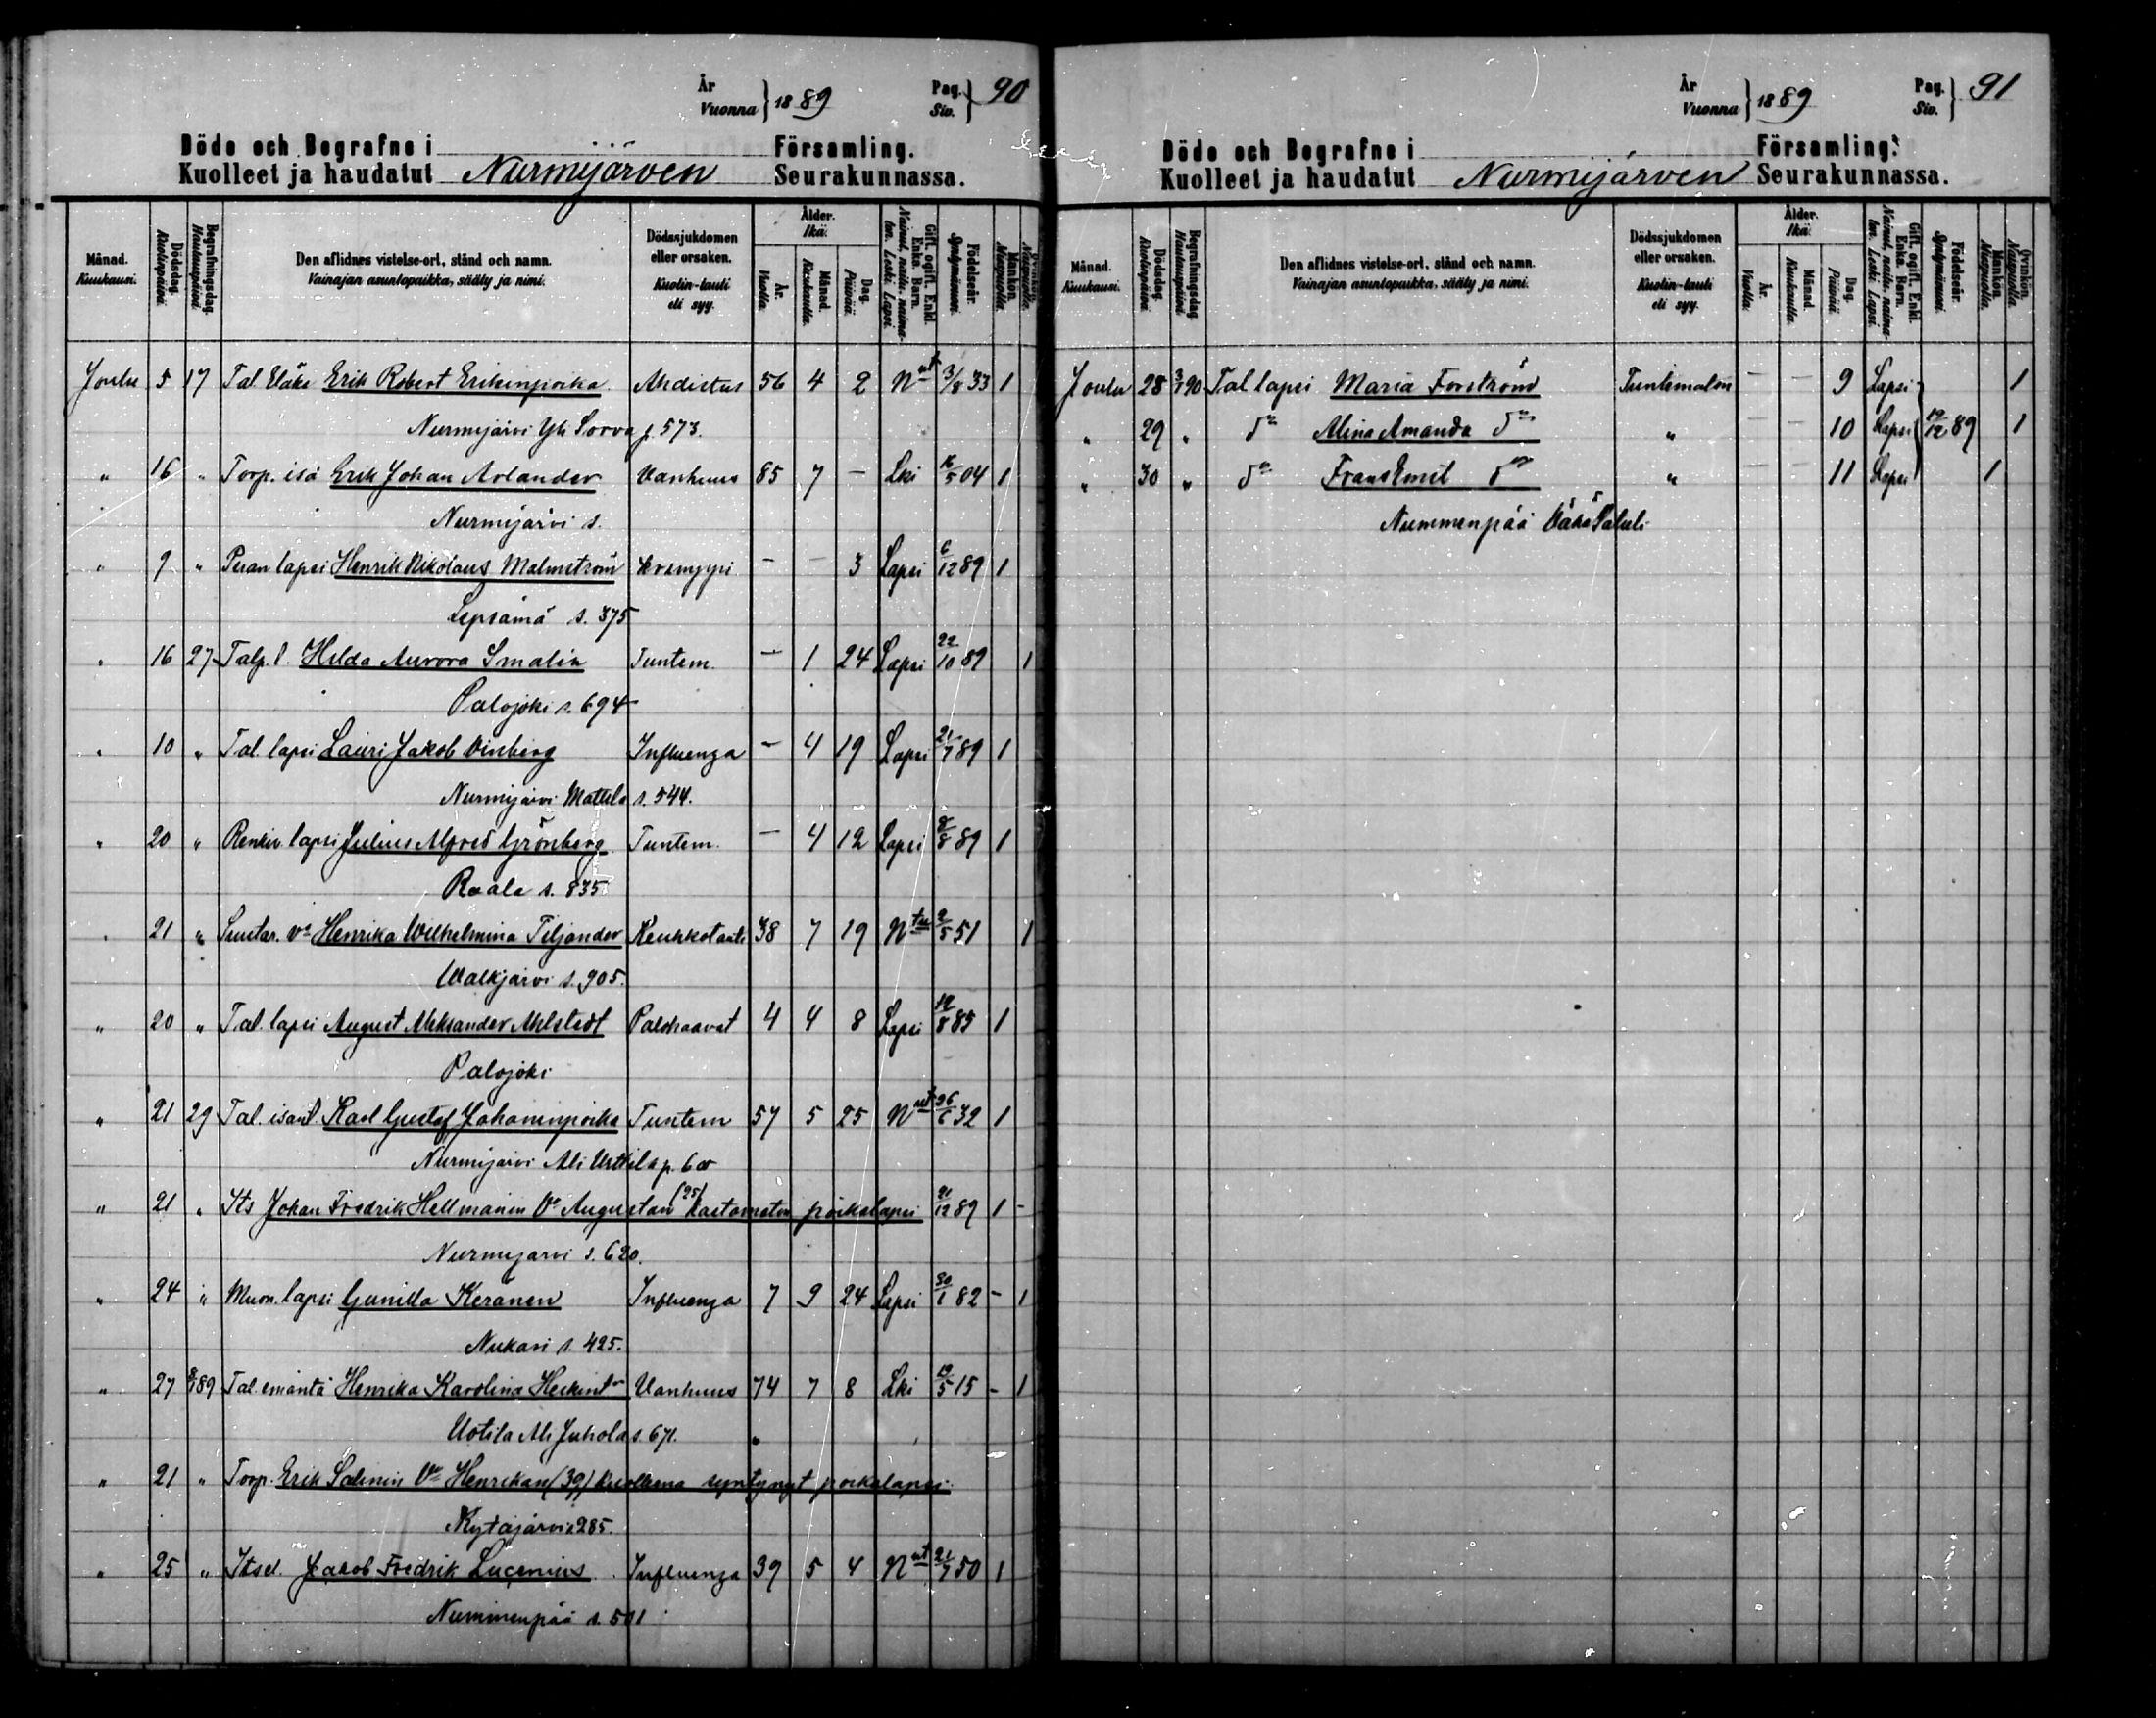 År
Vuonna } 1889 Pag. Siv. } 90
Döde och Begrafne i Församling.
Kuolleet ja haudatut Nurmijärven Seurakunnassa.
Månad. Kuukausi. Dödsdag. Kuolinpäivä. Begrafningsdag. Hautauspäivä. Den aflidnes vistelse-ort, stånd och namn. Vainajan asuntopaikka, sääty ja nimi. Dödssjukdomen eller orsaken. Kuolin-tauti eli syy. Ålder. Ikä. År. Vuotta. Månad. Kuukautta. Dag. Päivää. Gift, ogift. Enkl. Enka. Barn. Nainut, naitu, naimaton. Leski. Lapsi. Födelseår. Syntymävuosi. Mankön. Miespuolta. Qvinkön. Naispuolta.
Joulu 5 17 Tal. Eläke Erik Robert Erikinpoika Ahdistus 56 4 2 N ut 3/8 33 1
Nurmijärvi Yli Sorva p. 573.
" 16 " Torp. isä Erik Johan Arlander Vanhuus 85 7 — Lki 16/5 04 1
Nurmijärvi s.
" 9 " lapsi Henrik Nikolaus Malmström — — 3 Lapsi 6/12 89 1
Lepsämä s. 375
" 16 27 Talp. l. Hilda Aurora Smalin Tuntem. — 1 24 Lapsi 22/10 89 1
Palojoki s. 694
" 10 " Tal. lapsi Lauri Jakob Vinberg Influenza — 4 19 Lapsi 21/7 89 1
Nurmijärvi Mattila s. 544.
" 20 " Rengin lapsi Julius Alfred Grönberg Tuntem. — 4 12 Lapsi 8/8 89 1
Raala s. 835
" 21 " Suutar. Vo Henrika Wilhelmina Tiljander Keuhkotauti 38 7 19 N tu 2/5 51 1
Walkjärvi s. 905.
" 20 " Tal. lapsi August Aleksander Ahlstedt Palohaavat 4 4 8 Lapsi 12/8 85 1
Palojoki
" 21 29 Tal. isänt. Karl Gustaf Johaninpoika Tuntem 57 5 25 N ut 26/6 32 1
Nurmijärvi Ali Uotila p. 60
" 21 " Its Johan Fredrik Hellmanin Vo Augustan (25) Kastamaton poikalapsi 21/12 89 1 -
Nurmijärvi s. 620.
" 24 " Muon. lapsi Gunilla Keränen Influenza 7 9 24 Lapsi 30/1 82 - 1
Nukari s. 425.
" 27 89 Tal. emäntä Henrika Karolina Heikint. Vanhuus 74 7 8 Lki 19/5 15 - 1
Uotila Ali Juhola s. 671.
" 21 " Torp. Erik Salinin Vo Henrikan (39) Kuolleena syntynyt poikalapsi.
Kytäjärvi s 285.
" 25 " Itsel. Jakob Fredrik Lucenius Influenza 39 5 4 N ut 21/7 50 1
Nummenpää s. 501
År
Vuonna } 1889 Pag. Siv. } 91
Döde och Begrafne i Församling.
Kuolleet ja haudatut Nurmijärven Seurakunnassa.
Månad. Kuukausi. Dödsdag. Kuolinpäivä. Begrafningsdag. Hautauspäivä. Den aflidnes vistelse-ort, stånd och namn. Vainajan asuntopaikka, sääty ja nimi. Dödssjukdomen eller orsaken. Kuolin-tauti eli syy. Ålder. Ikä. År. Vuotta. Månad. Kuukautta. Dag. Päivää. Gift, ogift. Enkl. Enka. Barn. Nainut, naitu, naimaton. Leski. Lapsi. Födelseår. Syntymävuosi. Mankön. Miespuolta. Qvinkön. Naispuolta.
Joulu 28 3/1 90 Tal lapsi Maria Forström Tuntematon — — 9 Lapsi 1
" 29 " do Alina Amanda do " — 10 Lapsi 19/12 89 1
" 30 " do Frans Emil do " — — 11 Lapsi 1
Nummenpää Vähä